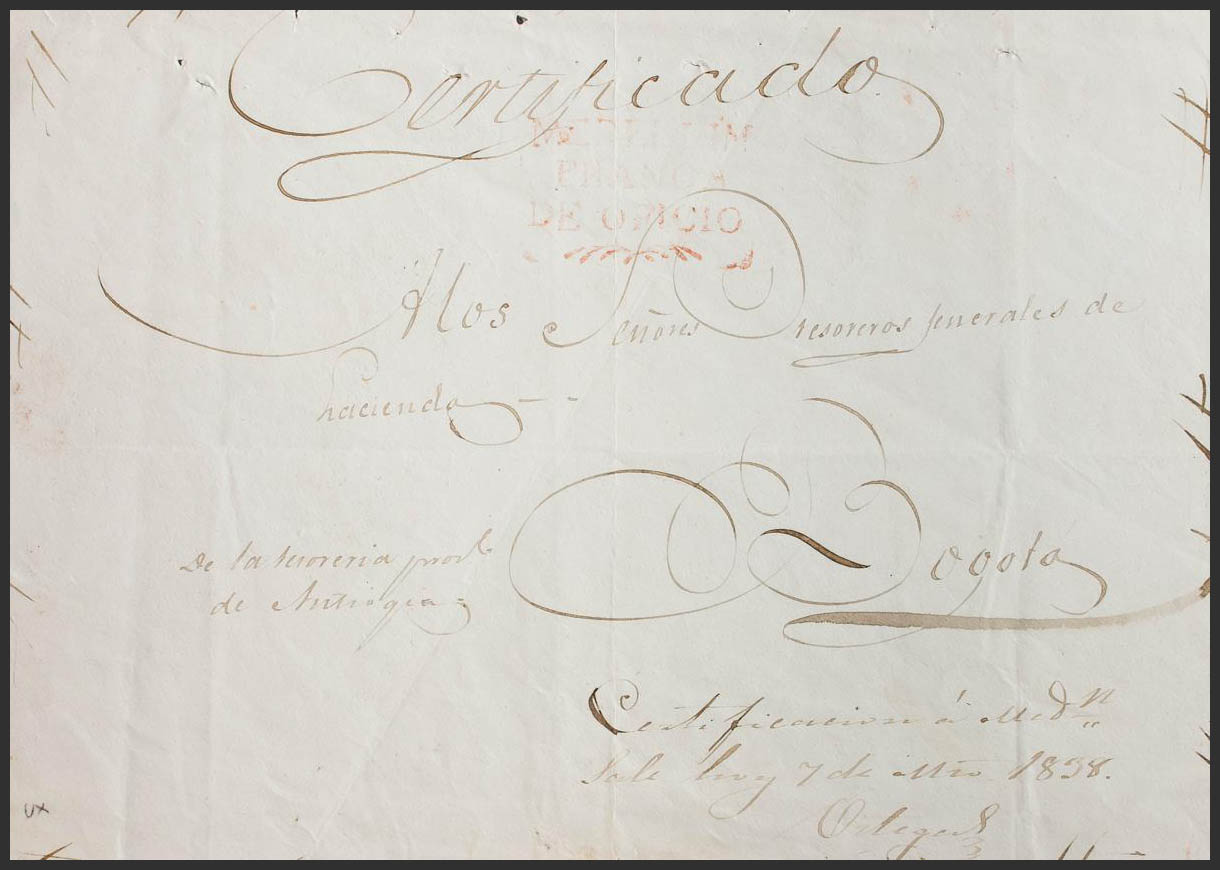 Certificado
MEDELLIN
FRANCA
DE OFICIO
A los Señores tesoreros jenerales de
hacienda
Bogotá
De la tesoreria provl.
de Antioqia
Certificacion á Medn
Sale hoy 7 de 1838.